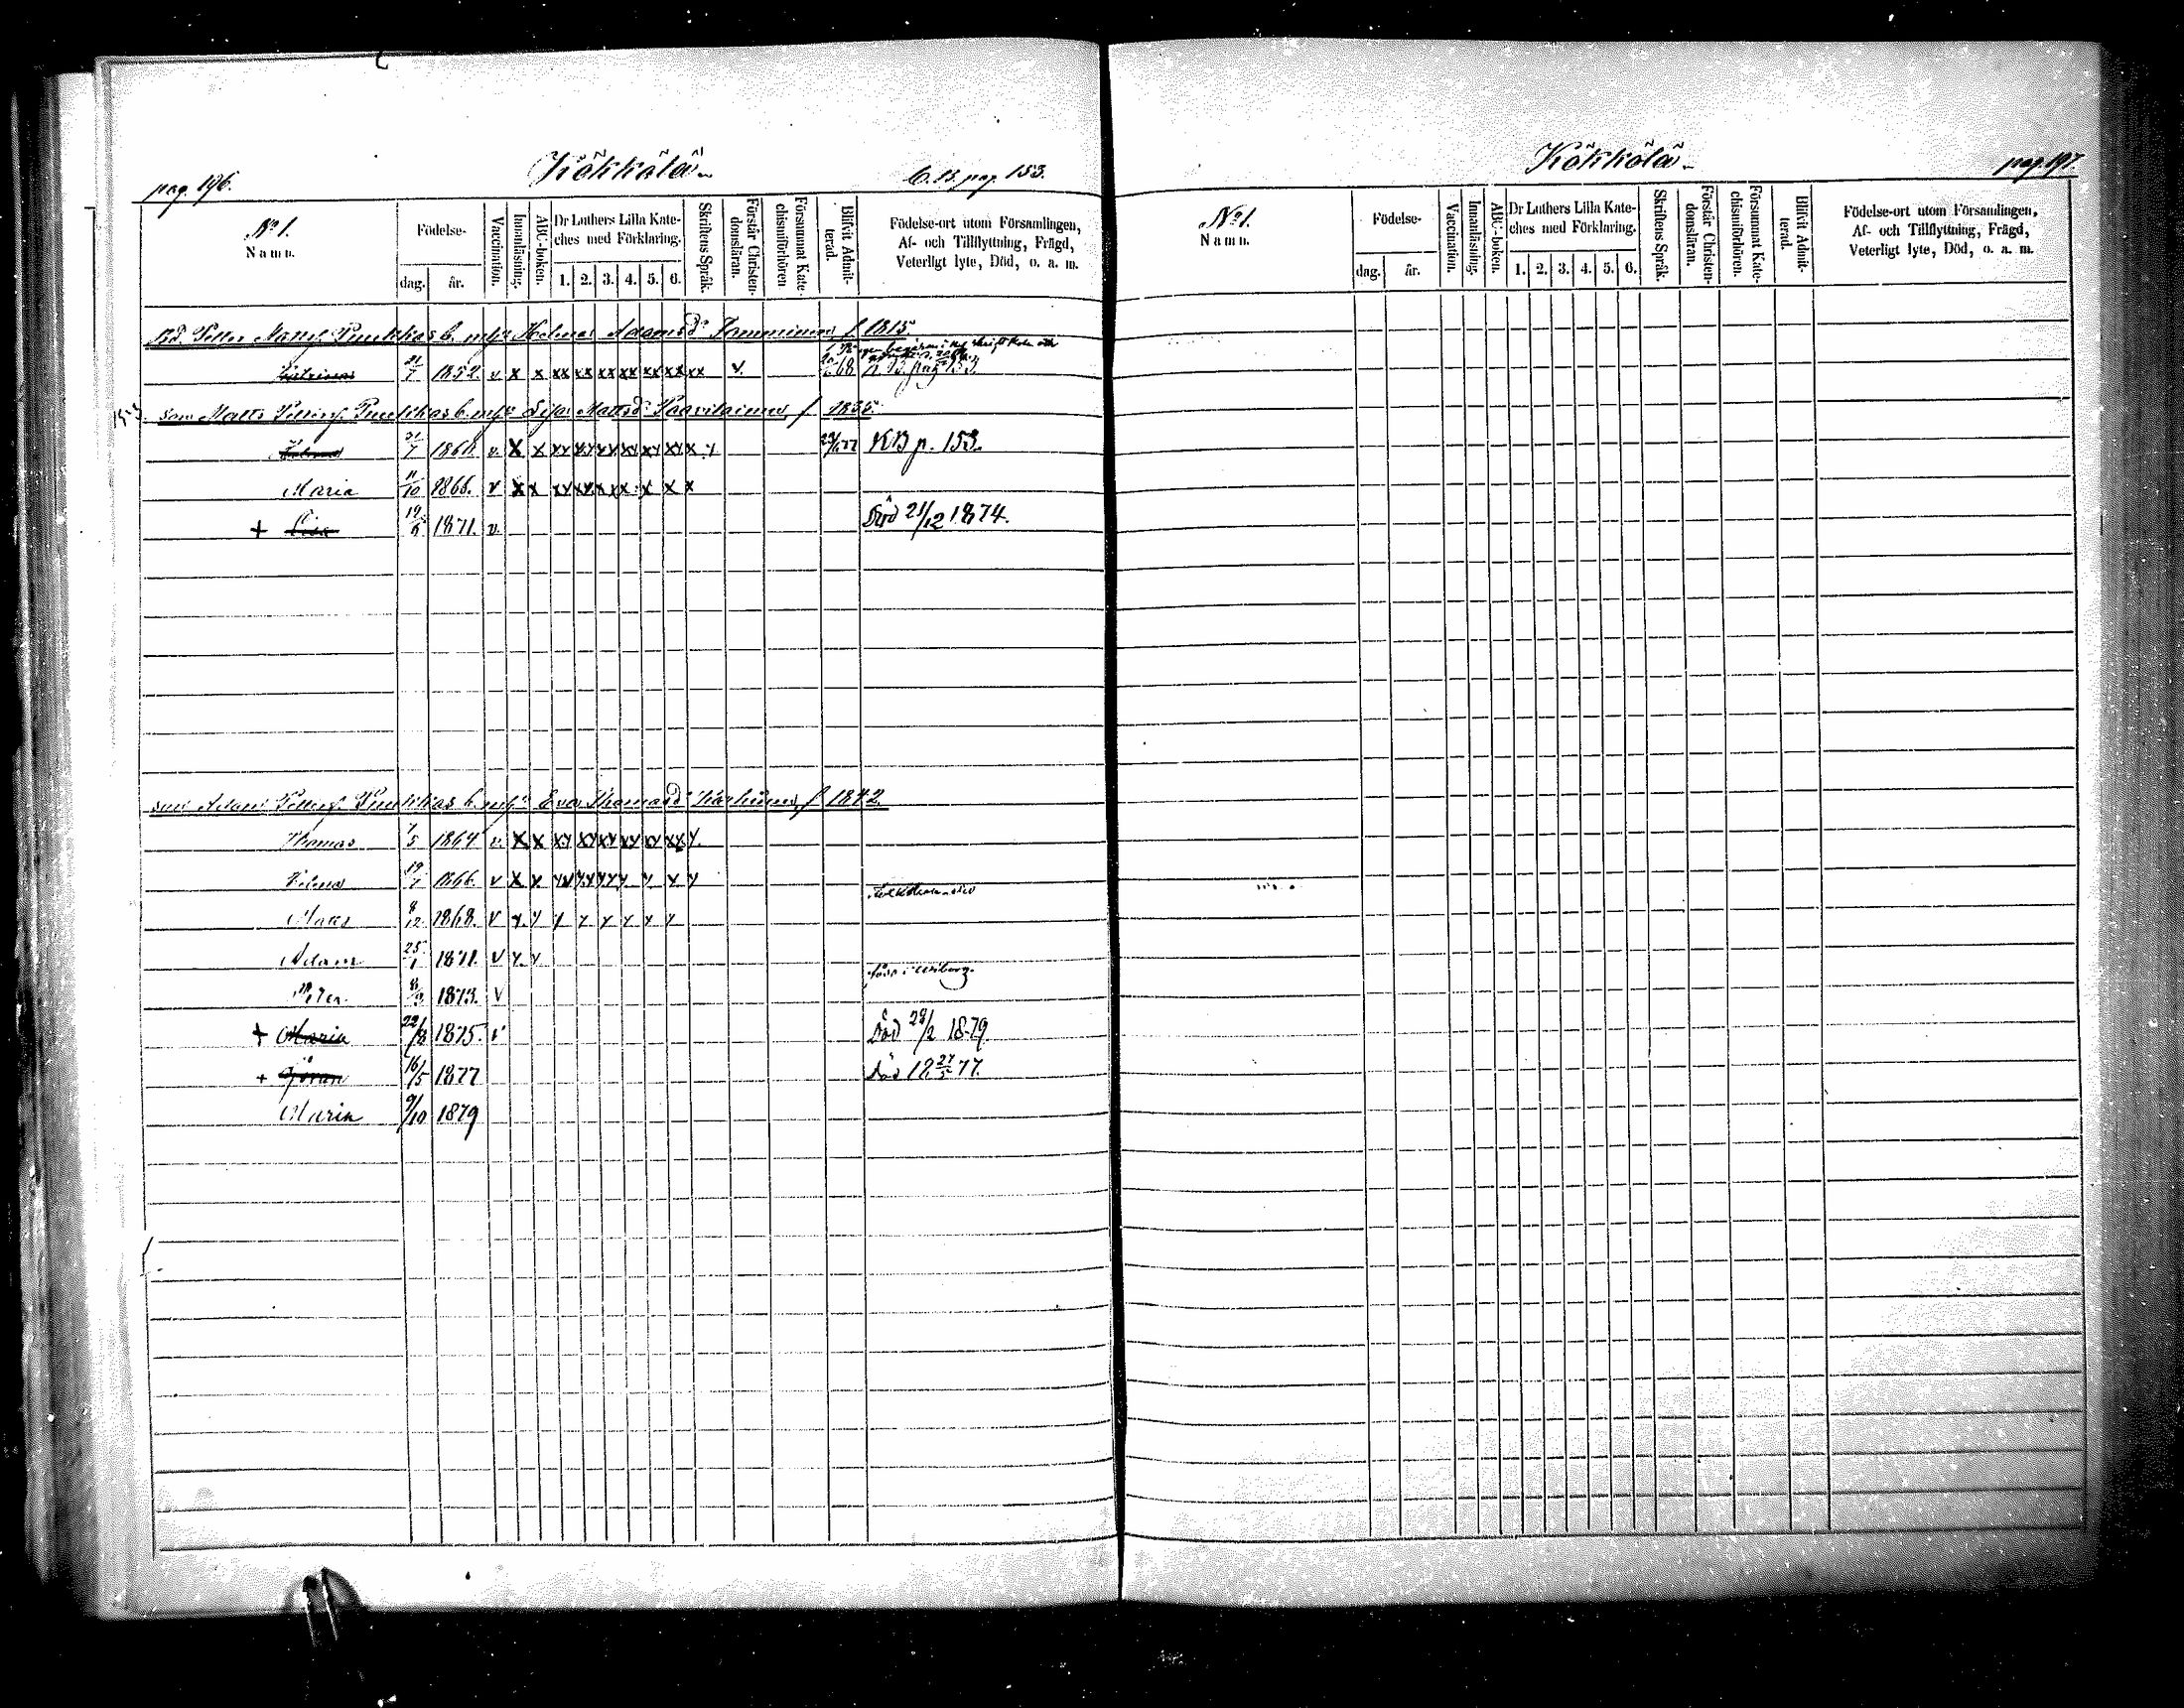 pag. 196.
Kökkölä
C. B. pag. 153.
No 1.
Namn.
Födelse-
dag. år.
Vaccination.
Innanläsning.
ABC-boken.
Dr Luthers Lilla Kate-
ches med Förklaring.
1. 2. 3. 4. 5. 6.
Skriftens Språk.
Förstår Christen-
domsläran.
Försummat Kate-
chismiförhören
Blifvit Admit-
terad.
Födelse-ort utom Församlingen,
Af- och Tillflyttning, Frägd,
Veterligt lyte, Död, o. a. m.
Petter Matts. b. Helena Adamsd. Tommined f 1815
Katrina 21/7 1852. v x x xx xx xx xx xx xx xx v. 68 pag 153.
153. son Matts Petters. b. Lisa Mattsd. Paavilainen f. 1835.
Helena 21/7 1860. v. x x xy xy xy xy xy xy x y 77 KB p. 153.
Maria 11/10 1866. v x x xy xx x x x x x
+ Lisa 19/6 1871. v. Död 21/12 1874.
son Adam Petters. b. Eva Thomasd. f 1842.
Thomas 1/5 1864 v. x x xy xy xy xy xy xx y.
Helena 19/1 1866. v x y y y y y y
Matts 8/12 1868. v y. y y y y y y y
Adam 25/1 1871. v y. y
född i Wiborg.
Peter 1873. v
+ Maria 22/8 1875. v Död 28/2 1879.
+ Göran 16/5 1877 Död 27/5 77.
Maria 9/10 1879
Kökkölä
pag. 197.
No 1.
Namn.
Födelse-
dag. år.
Vaccination.
Innanläsning.
ABC-boken.
Dr Luthers Lilla Kate-
ches med Förklaring.
1. 2. 3. 4. 5. 6.
Skriftens Språk.
Förstår Christen-
domsläran.
Försummat Kate-
chismiförhören.
Blifvit Admit-
terad.
Födelse-ort utom Församlingen,
Af- och Tillflyttning, Frägd,
Veterligt lyte, Död, o. a. m.